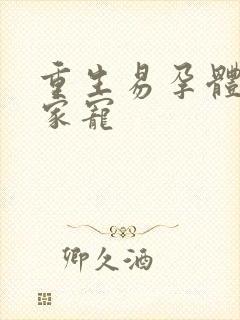 重生易孕體
家寵
卿久酒